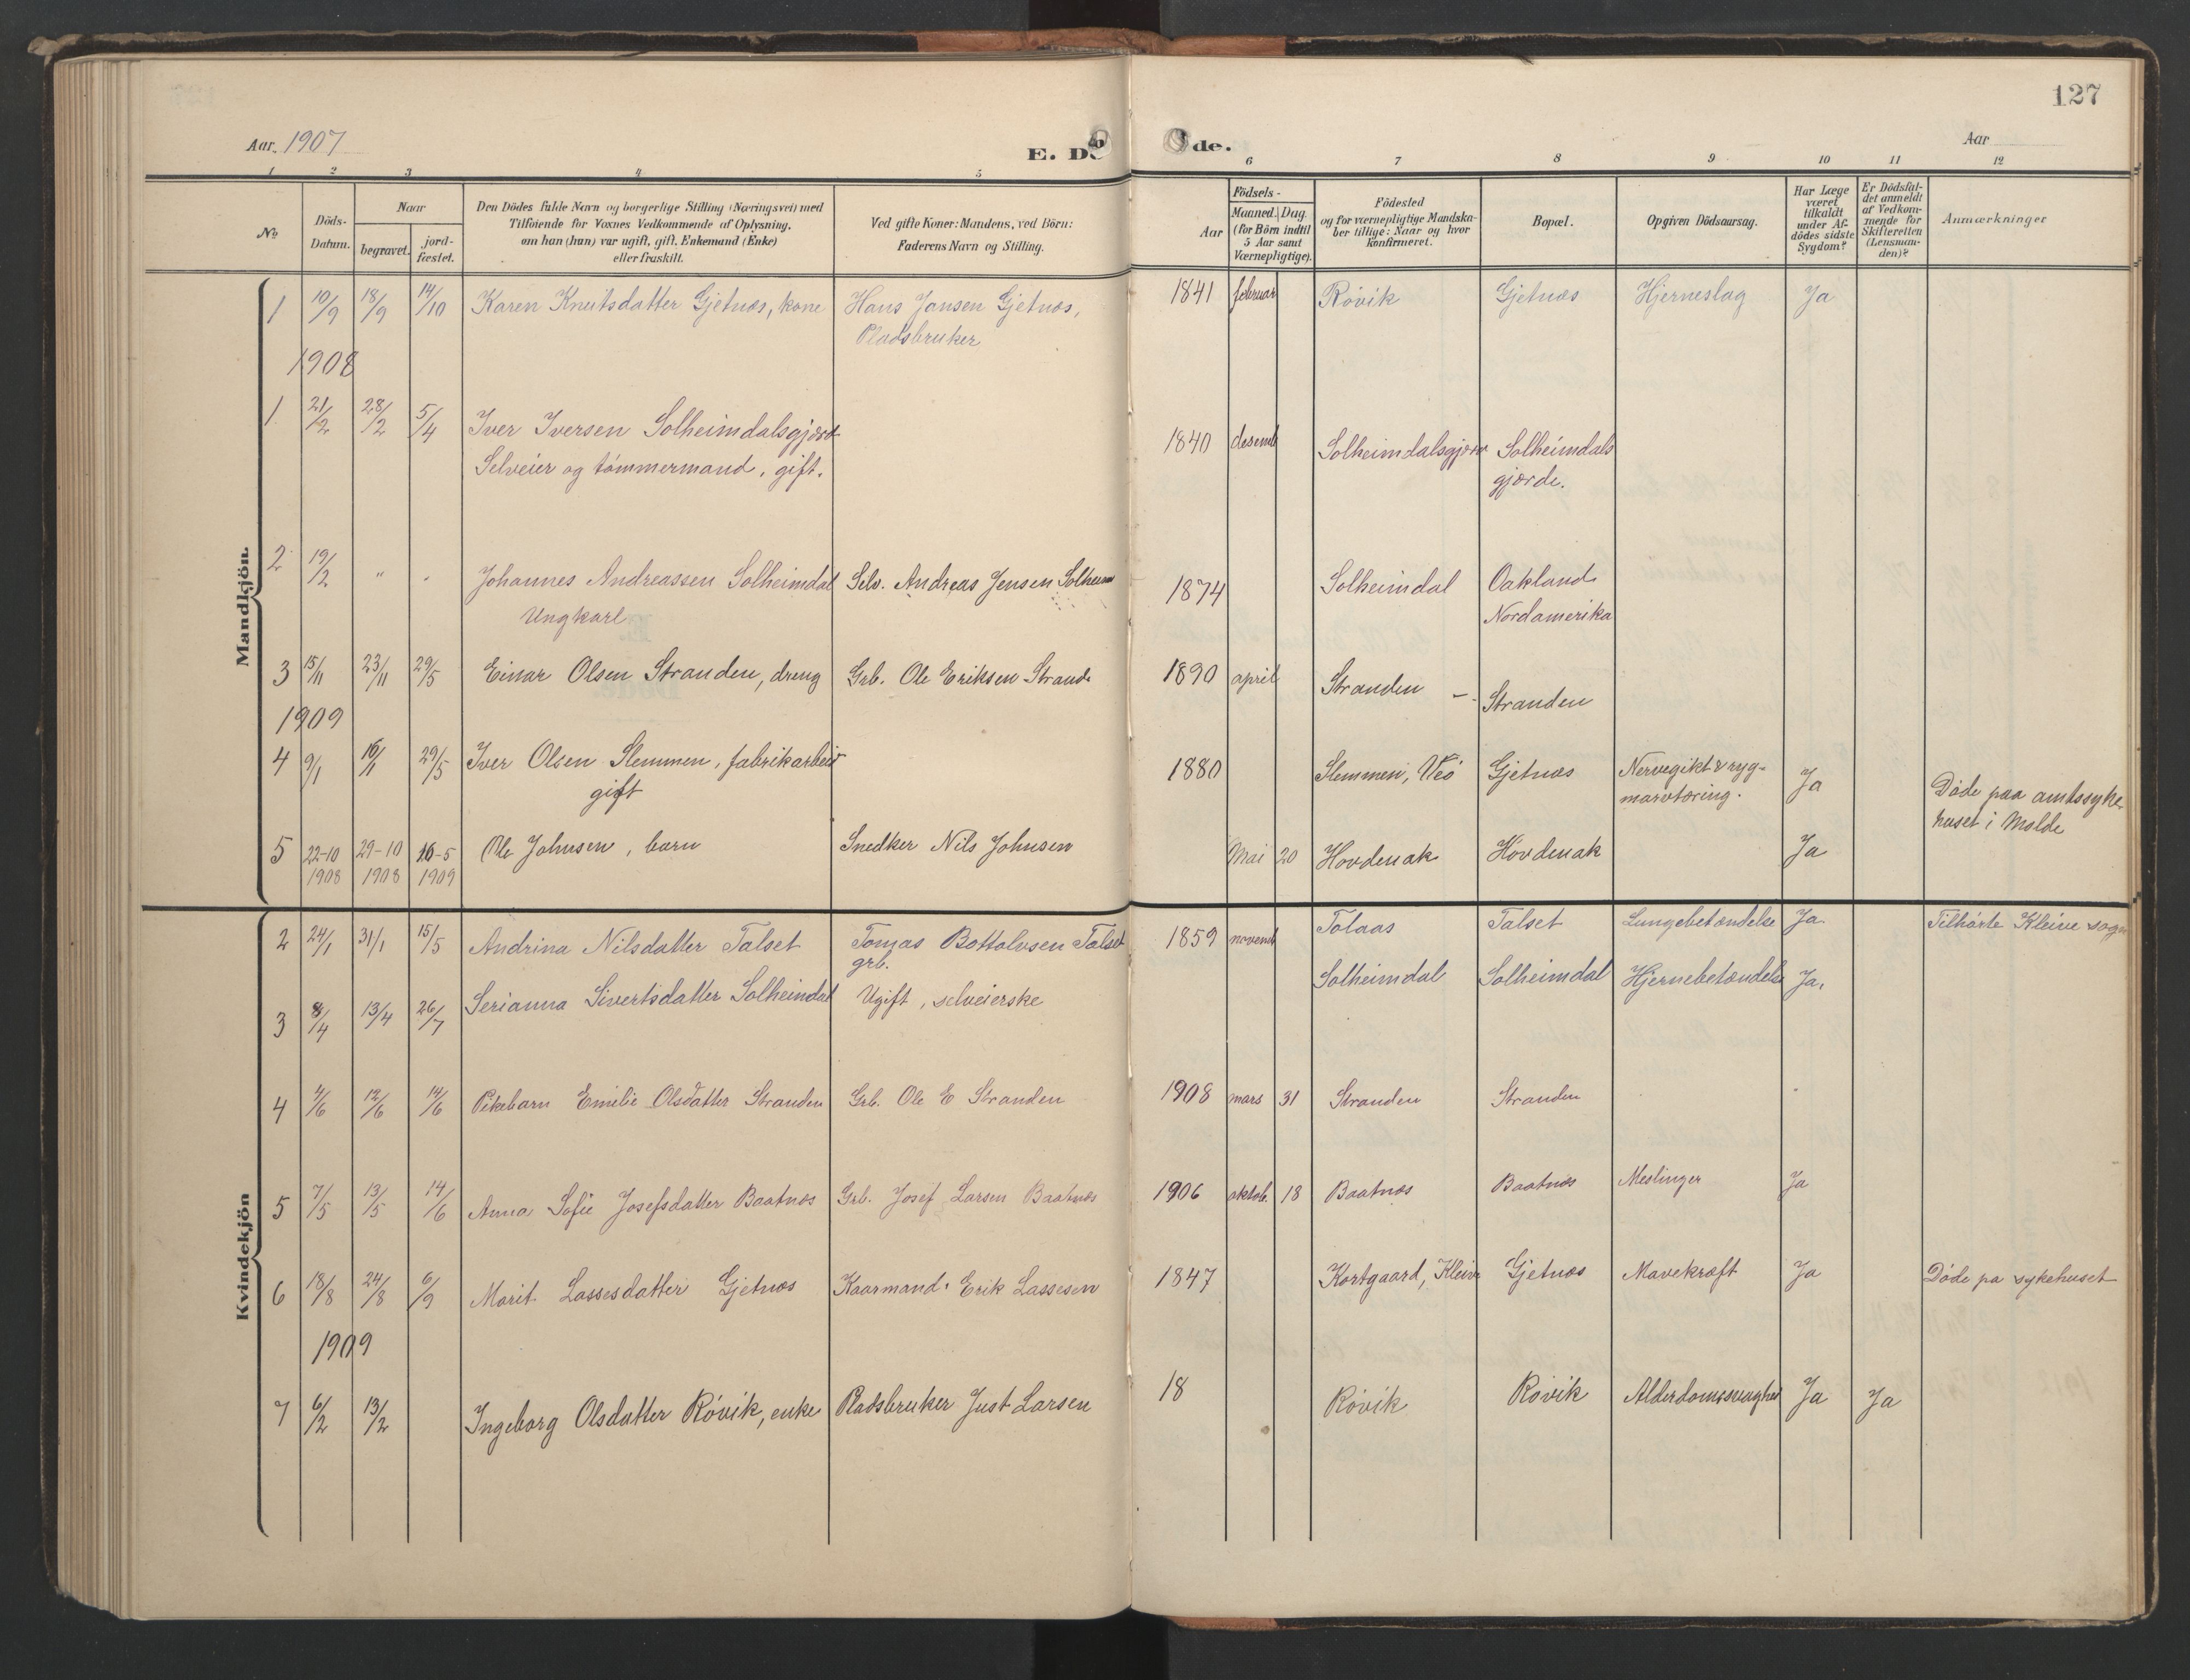 127
Aar. 1907
E. Dö
de.
Aar
1 2 3 4 5
6 7 8 9 10 11 12
No
Döds-
Datum.
Naar
begravet.
jord-
fæstet.
Den Dödes fulde Navn og borgerlige Stilling (Næringsvei) med
Tilföiende for Voxnes Vedkommende af Oplysning.
om han (hun) var ugift, gift, Enkemand (Enke)
eller fraskilt.
Ved gifte Koner: Mandens, ved Börn:
Faderens Navn og Stilling.
Födsels-
Aar
Maaned. Dag.
(for Börn indtil
5 Aar samt
Værnepligtige).
Födested
og for værnepligtige Mandska-
ber tillige: Naar og hvor
konfirmeret.
Bopæl.
Opgiven Dödsaarsag.
Har Læge
været
tilkaldt
under Af-
dödes sidste
Sygdom?
Er Dödsfal-
det anmeldt
af Vedkom-
mende for
Skifteretten
(Lensman-
den)?
Anmærkninger
Mandkjön
1 10/9 18/9 14/10 Karen Knutsdatter Gjetnæs, kone Hans Jansen Gjetnæs, 1841 februar Róvik Gjetnæs Hjerneslag Ja
Pladsbruker
1908
1 21/2 28/2 5/4 Iver Iversen Solheimdalsgjærd 1840 desemb Solheimdalsgjær Solheimdals
Selveier og tómmermand, gift. gjærde.
2 19/2 " " Johannes Andreassen Solheimdal Selv. Andreas Jensen Solheim 1874 Solheimdal Oakland
Ungkarl Nordamerika
3 15/11 23/11 29/5 Einar Olsen Stranden, dreng Grb. Ole Eriksen Strande 1890 april Stranden – Stranden
1909
4 9/1 16/1 29/5 Iver Olsen Slemmen, fabrikarbeid 1880 Slemmen, Veó Gjetnæs Nervegikt & ryg- Ja Dóde paa amtssyke-
gift marvtæring. huset i Molde
5 22-10 29-10 16-5 Ole Johnsen, barn Snedker Nils Johnsen Mai 20 Hovdenak Hovdenak Ja
1908 1908 1909
Kvindekjön
2 24/1 31/1 15/5 Andrina Nilsdatter Talset Tomas Bottolvsen Talset 1859 novemb Tolaas Talset Lungebetændelse Ja Tilhórte Kleive sogn
grb.
3 8/4 13/4 26/7 Serianna Sivertsdatter Solheimdal Ugift, selveierske Solheimdal Solheimdal Hjernebetændelse Ja.
4 4/6 12/6 14/6 Pikebarn Emilie Olsdatter Stranden Grb. Ole E Stranden 1908 mars 31 Stranden Stranden
5 7/5 13/5 14/6 Anna Sofie Josefsdatter Baatnæs Grb. Josef Larsen Baatnæs 1906 oktob. 18 Baatnæs Baatnæs Meslinger Ja
6 18/8 24/8 6/9 Marit Lassesdatter Gjetnæs Kaarmand Erik Lassesen 1847 Kortgaard, Kleive Gjetnæs Mavekræft Ja Dóde pa sykehuset
1909
7 6/2 13/2 Ingeborg Olsdatter Róvik, enke Pladsbruker Just Larsen 18 Róvik Róvik Alderdomssvaghet Ja Ja